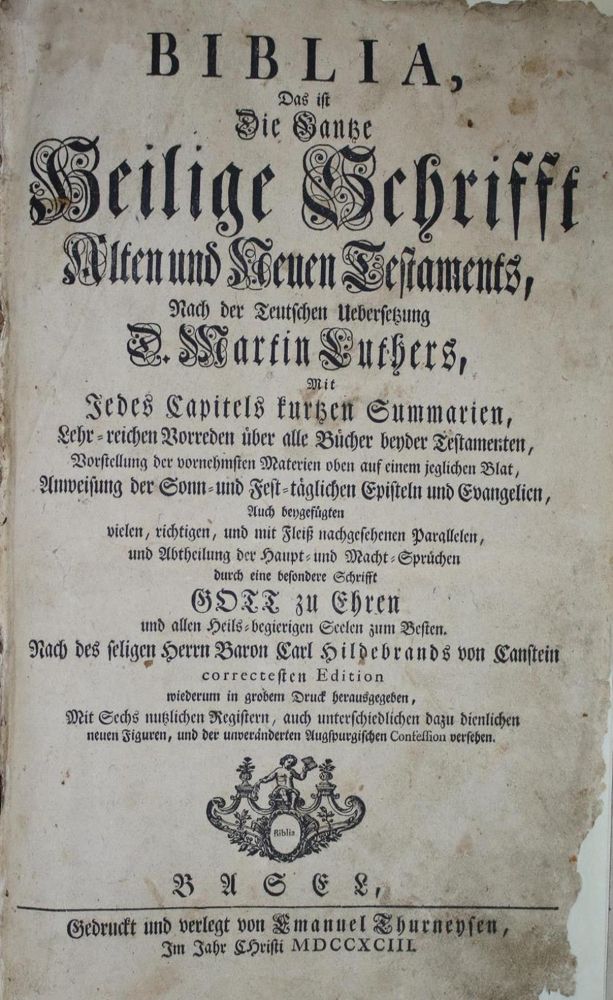 BIBLIA,
Das ist
Die Gantze
Heilige Schrifft
Alten und Neuen Testaments,
Nach der Teutschen Uebersetzung
D. Martin Luthers,
Mit
Jedes Capitels kurtzen Summarien,
Lehr-reichen Vorreden über alle Bücher beyder Testamenten,
Vorstellung der vornehmsten Materien oben auf einem jeglichen Blat,
Anweisung der Sonn- und Fest-täglichen Episteln und Evangelien,
Auch beygefügten
vielen, richtigen, und mit Fleiß nachgesehenen Parallelen,
und Abtheilung der Haupt- und Macht-Sprüchen
durch eine besondere Schrifft
GOTT zu Ehren
und allen Heils-begierigen Seelen zum Besten.
Nach des seligen Herrn Baron Carl Hildebrands von Canstein
correctesten Edition
wiederum in grobem Druck herausgegeben,
Mit Sechs nutzlichen Registern, auch unterschiedlichen dazu dienlichen
neuen Figuren, und der unveränderten Augspurgischen Confession versehen.
Biblia
BASEL,
Gedruckt und verlegt von Emanuel Thurneysen,
Im Jahr CHristi MDCCXCIII.